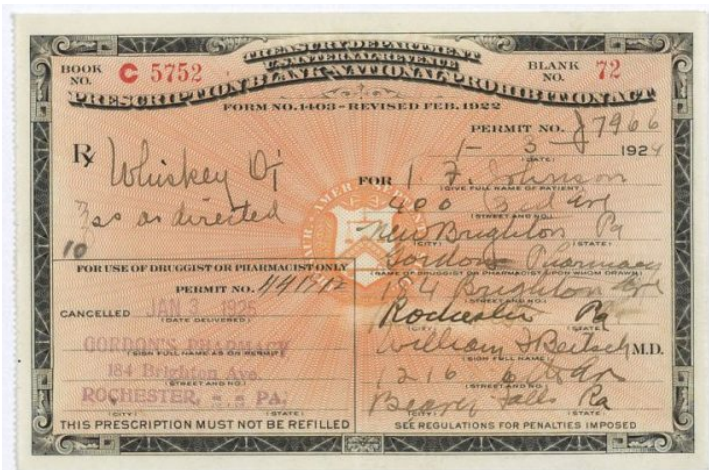 TREASURY DEPARTMENT
U.S. INTERNAL REVENUE
PRESCRIPTION BLANK-NATIONAL PROHIBITION ACT
FORM NO. 1403 - REVISED FEB. 1922
BOOK NO. C 5752
BLANK NO. 72
PERMIT NO. J7966
1- 3- 1924
(DATE)
Rx Whiskey
as directed
10
FOR J. F. Johnson
(GIVE FULL NAME OF PATIENT)
400 3rd Ave
(STREET AND NO.)
New Brighton Pa
(CITY) (STATE)
Gordon Pharmacy
(NAME OF DRUGGIST OR PHARMACIST UPON WHOM DRAWN)
184 Brighton Ave
(STREET AND NO.)
Rochester Pa
(CITY) (STATE)
William J M.D.
(SIGN FULL NAME)
1216
(STREET AND NO.)
Beaver Falls Pa
(CITY) (STATE)
SEE REGULATIONS FOR PENALTIES IMPOSED
FOR USE OF DRUGGIST OR PHARMACIST ONLY
PERMIT NO.
CANCELLED JAN 3 1925
(DATE DELIVERED)
GORDON'S PHARMACY
(SIGN FULL NAME AS ON PERMIT)
184 Brighton Ave.
(STREET AND NO.)
ROCHESTER, PA.
(CITY) (STATE)
THIS PRESCRIPTION MUST NOT BE REFILLED